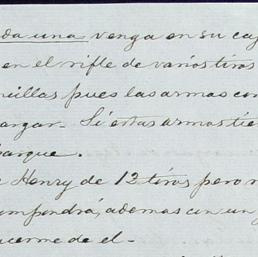 da una venga en su caj
en el rifle de varios tiros
illas pues las armas con
argar. Si estas armas tie
parque.
Henry de 12 tiros pero n
compondrá, ademas con un
hacerme de el-